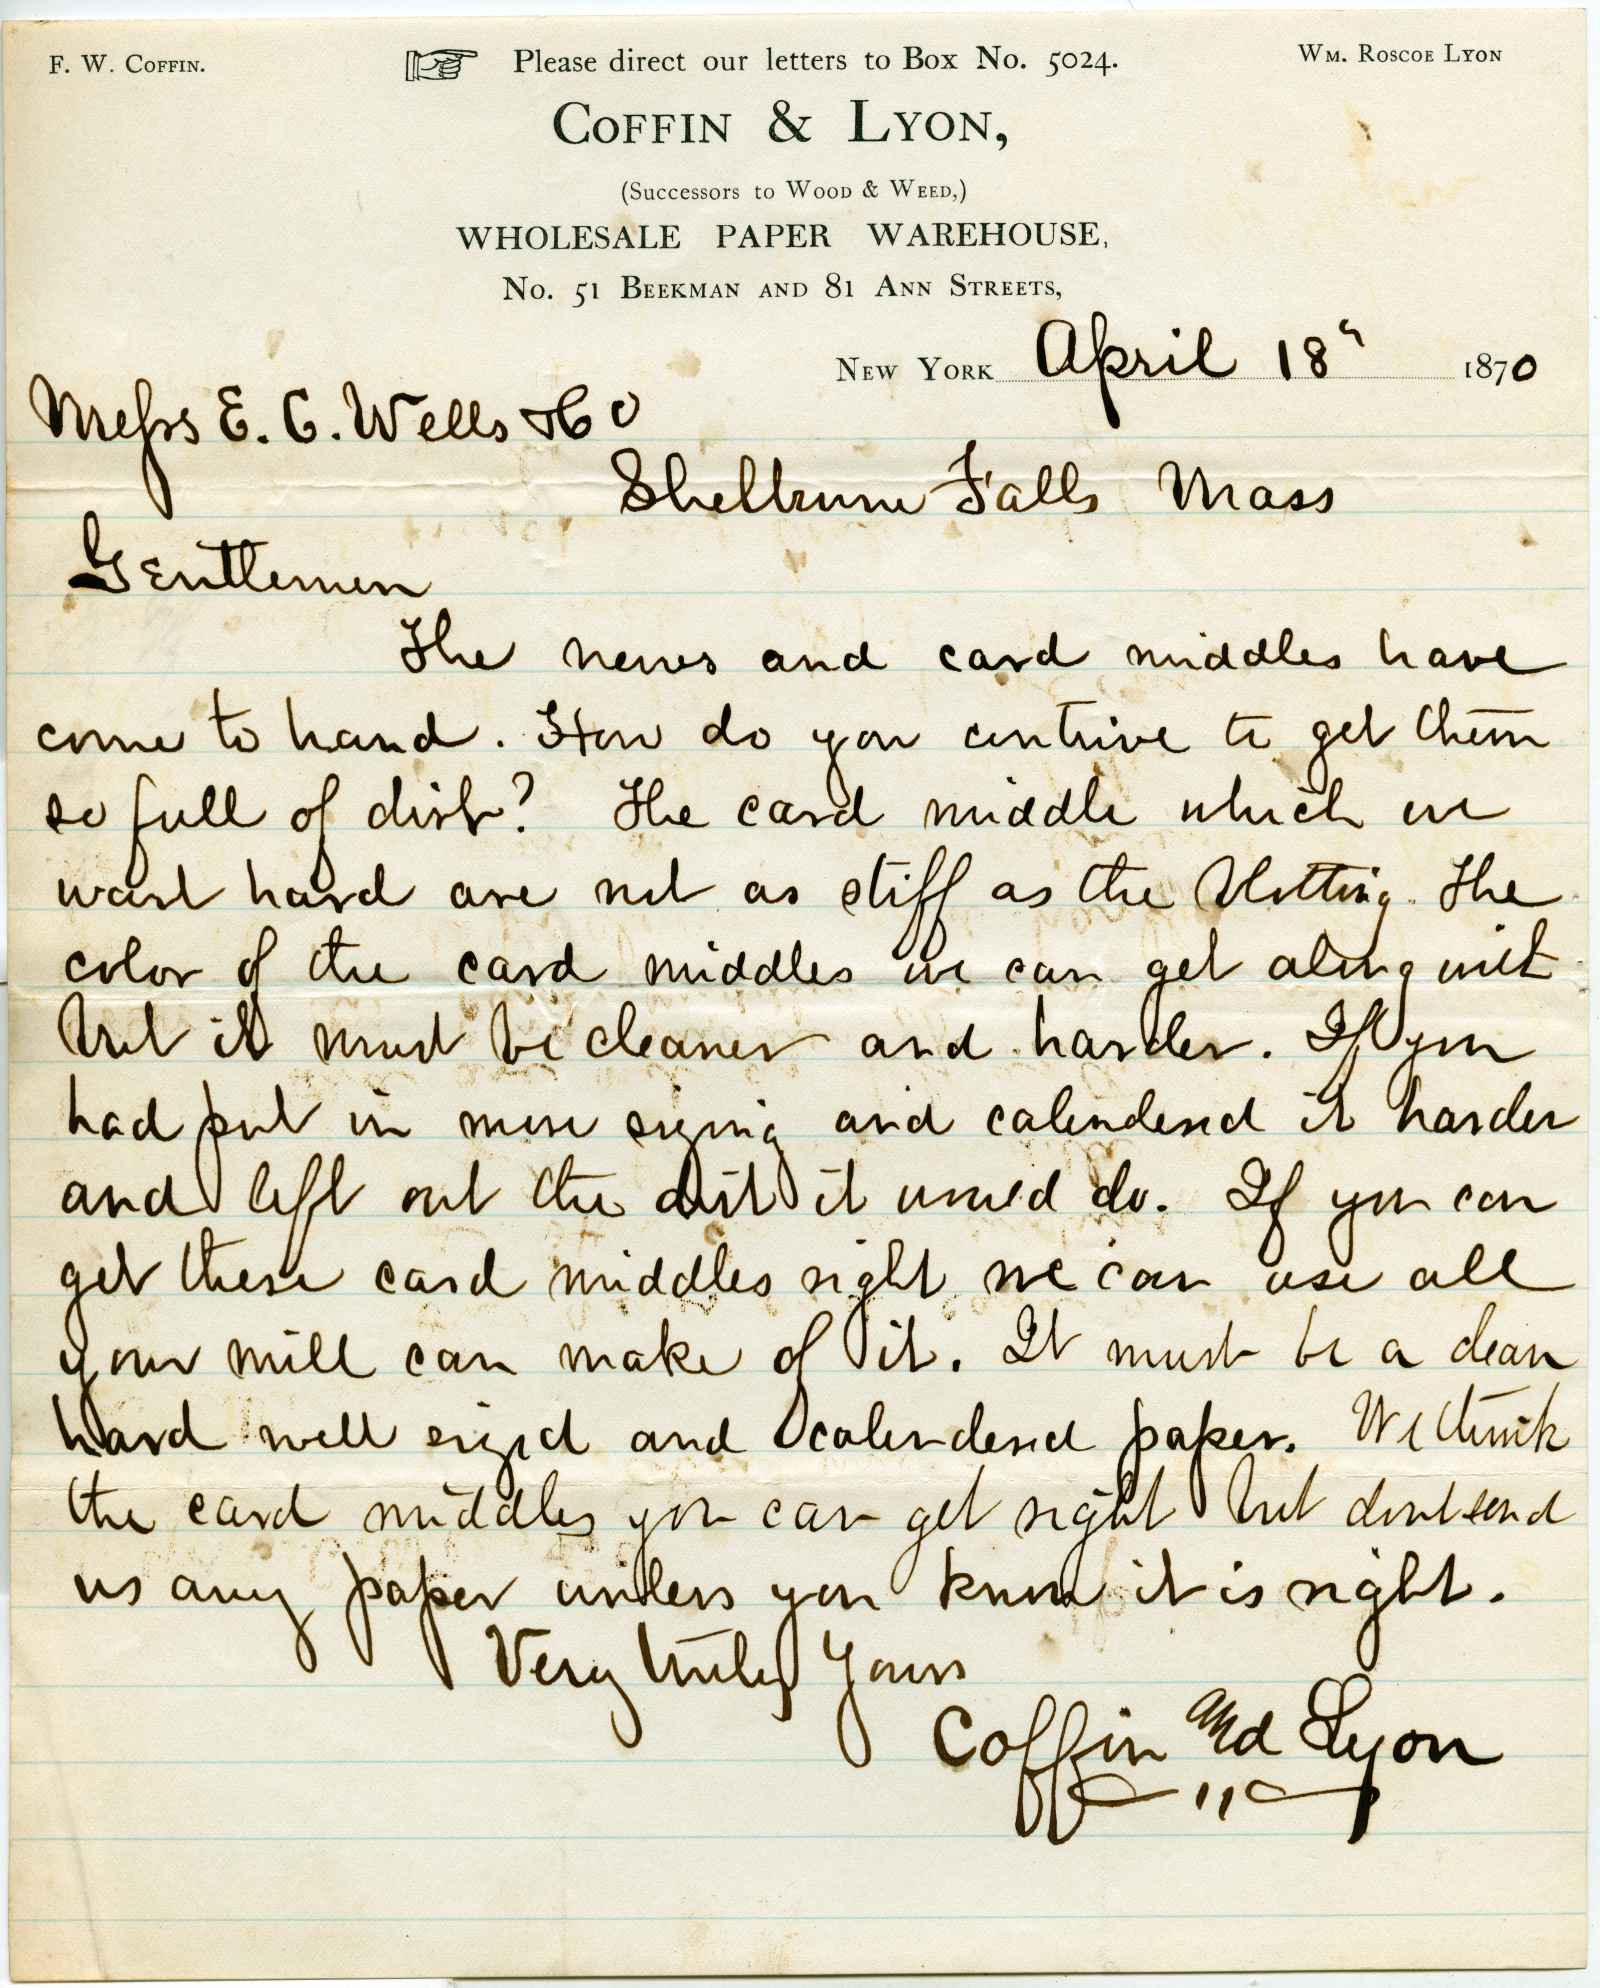 F. W. COFFIN.
Please direct our letters to Box No. 5024.
WM. ROSCOE LYON
COFFIN & LYON,
(Successors to WOOD & WEED,)
WHOLESALE PAPER WAREHOUSE,
No. 51 BEEKMAN AND 81 ANN STREETS,
NEW YORK April 18" 1870
Messrs E. C. Wells & Co
Shelburne Falls Mass
Gentlemen
The news and card middles have
come to hand. How do you contrive to get them
so full of dirt? The card middle which we
want hard are not as stiff as the blotting. The
color of the card middles we can get along with
but it must be cleaner and harder. If you
had put in more sizing and calendered it harder
and left out the dirt it would do. If you can
get these card middles right we can use all
your mill can make of it. It must be a clean
hard well sized and calendered paper. We think
the card middles you can get right but dont send
us any paper unless you know it is right.
Very truly Yours
Coffin and Lyon